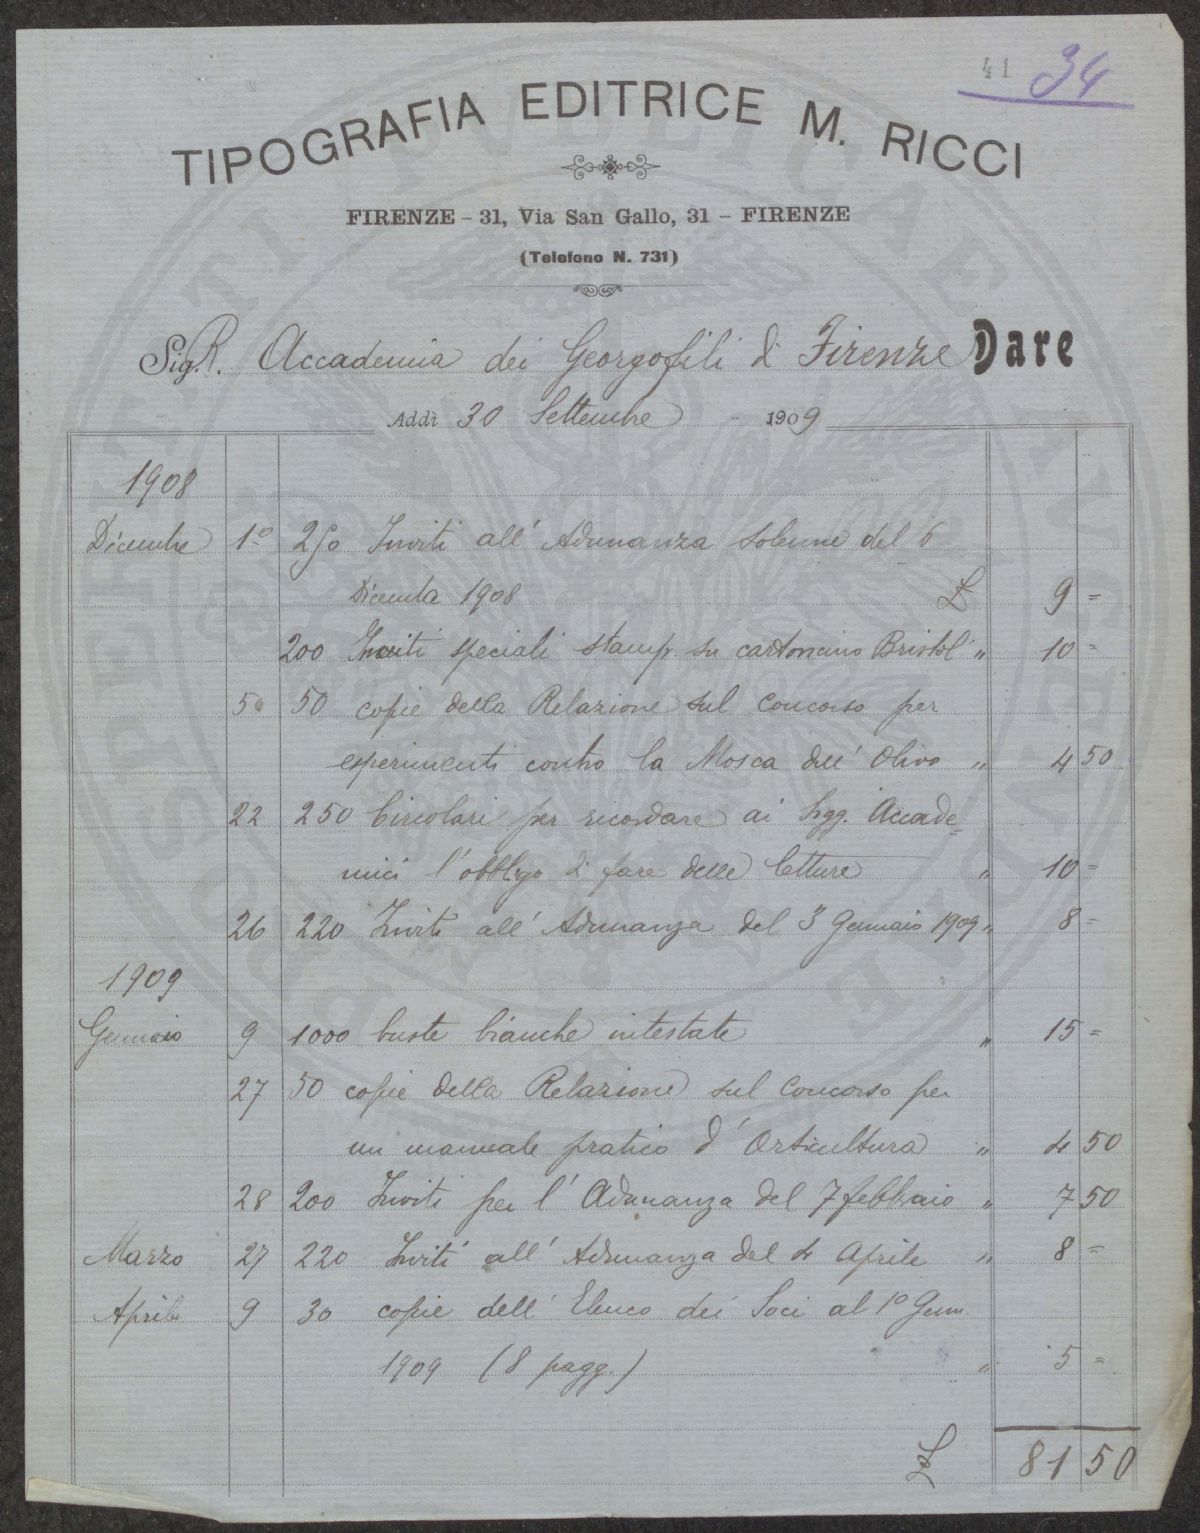 41 34
TIPOGRAFIA EDITRICE M. RICCI
FIRENZE – 31, Via San Gallo, 31 – FIRENZE
(Telefono N. 731)
Sig. R. Accademia dei Georgofili di Firenze Dare
Addì 30 Settembre 1909
1908
Dicembre 1º 250 Inviti all' Adunanza solenne del 6
Dicembre 1908 £ 9 =
200 Inviti speciali stamp. su cartoncino Bristol " 10 =
50 copie della Relazione sul Concorso per
esperimenti contro la Mosca dell' Olivo " 4 50
22 250 Circolari per ricordare ai Sigg. Accade=
mici l'obbligo di fare delle letture " 10 =
26 220 Inviti all' Adunanza del 3 Gennaio 1909 " 8 =
1909
Gennaio 9 1000 buste bianche intestate " 15 =
27 50 copie della Relazione sul Concorso per
un manuale pratico d' Orticultura " 4 50
28 200 Inviti per l' Adunanza del 7 febbraio " 7 50
Marzo 27 220 Inviti all' Adunanza del 4 Aprile " 8 =
Aprile 9 30 copie dell' Elenco dei Soci al 1º Genn.
1909 (8 pagg.) " 5 =
£ 81 50